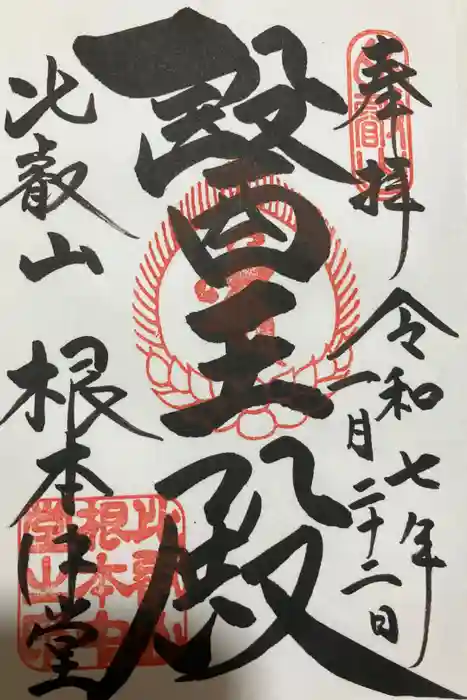 奉拝
令和七年
一月二十二日
醫王殿
比叡山 根本中堂
比叡山
根本中
堂山